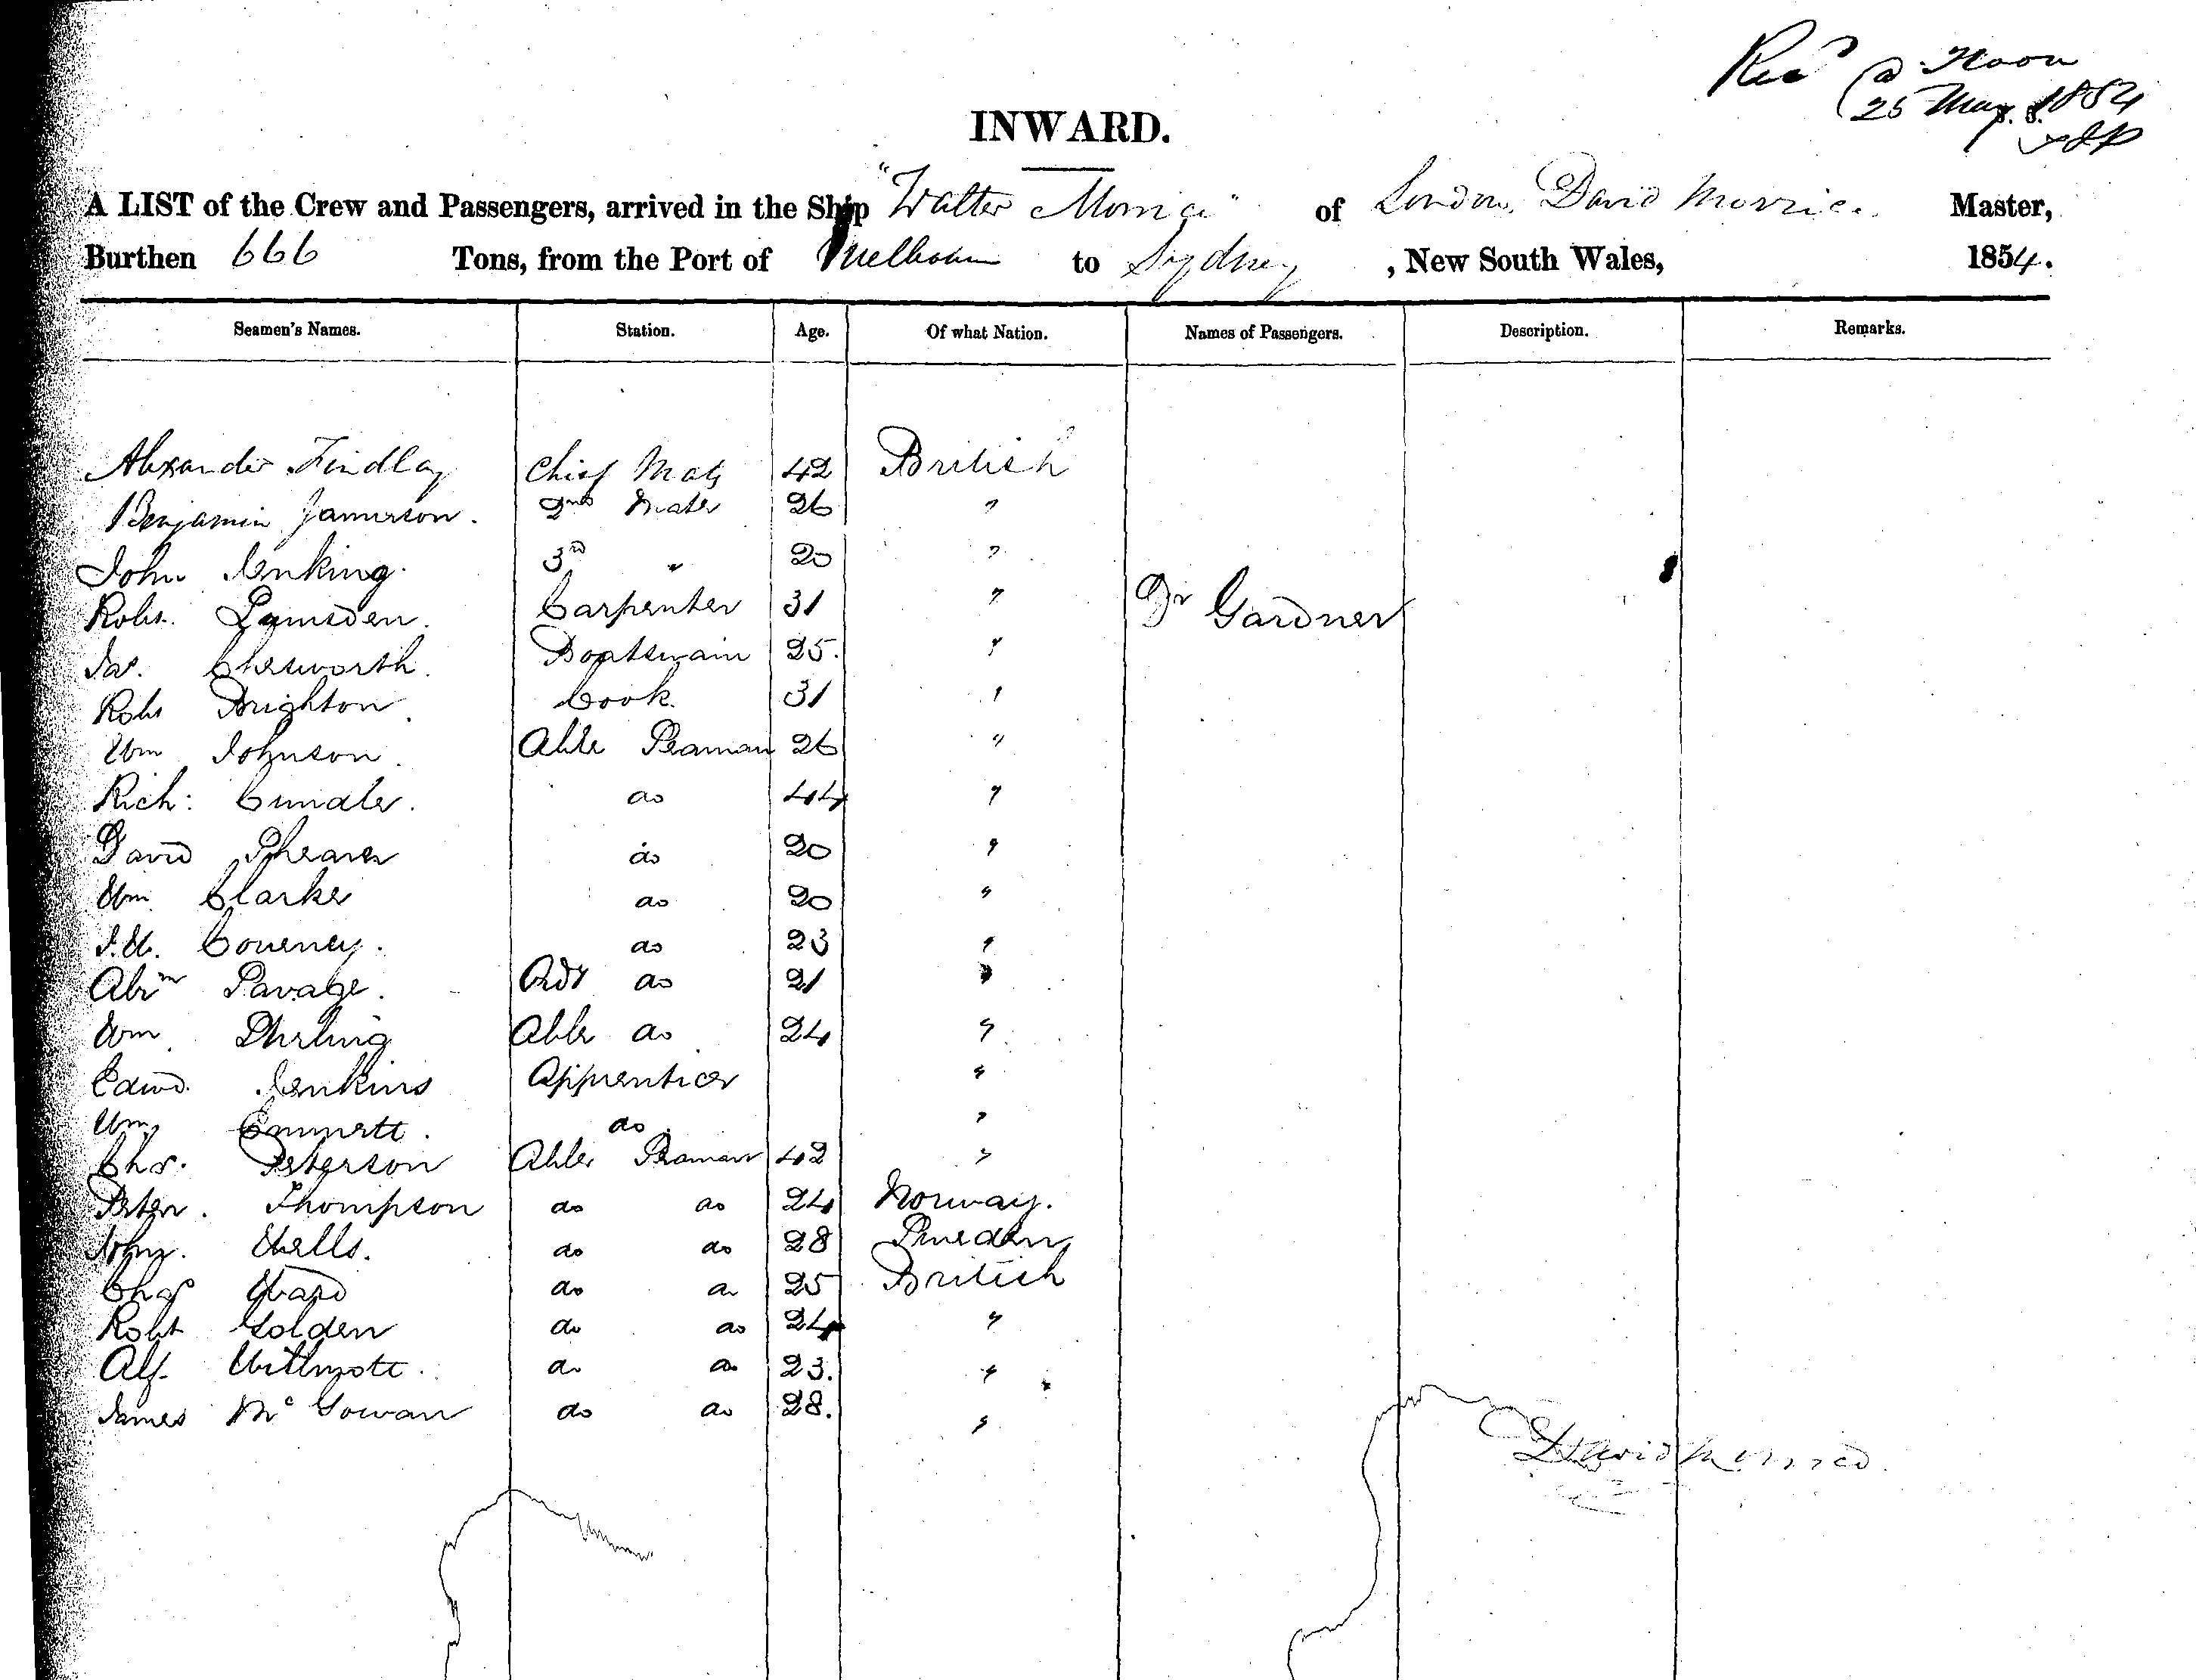 Recd @ Noon
25 May 1854
INWARD.
A LIST of the Crew and Passengers, arrived in the Ship "Walter Morrice" of London, David Morrice Master,
Burthen 666 Tons, from the Port of Melbourne to Sydney, New South Wales, 1854.
Seamen's Names. Station. Age. Of what Nation. Names of Passengers. Description. Remarks.
Alexander Findlay Chief Mate 42 British
Benjamin Jamerson. 2nd Mate 26 "
John Jenking. 3rd " 20 "
Robt. Lumsden. Carpenter 31 " Dr Gardner
Jas. Chesworth. Boatswain 25. "
Robt Brighton. Cook. 31 "
Wm Johnson. Able Seaman 26 "
Rich: Cundle. do 44 "
David Shearer do 20 "
Wm. Clarke do 20 "
Coveney. do 23 "
Abrm Savage. Ody do 21 "
Wm. Able do 24 "
Edwd. Jenkins Apprentice "
Wm. Emmett. do "
Chs. Peterson Able Seaman 42 "
Peter. Thompson do do 24 Norway.
John. Wells. do do 28 Sweden
Chas Ward do do 25 British
Robt Golden do do 24 "
Alf. Willmott. do do 23. "
James McGowan do do 28. "
David Morrice